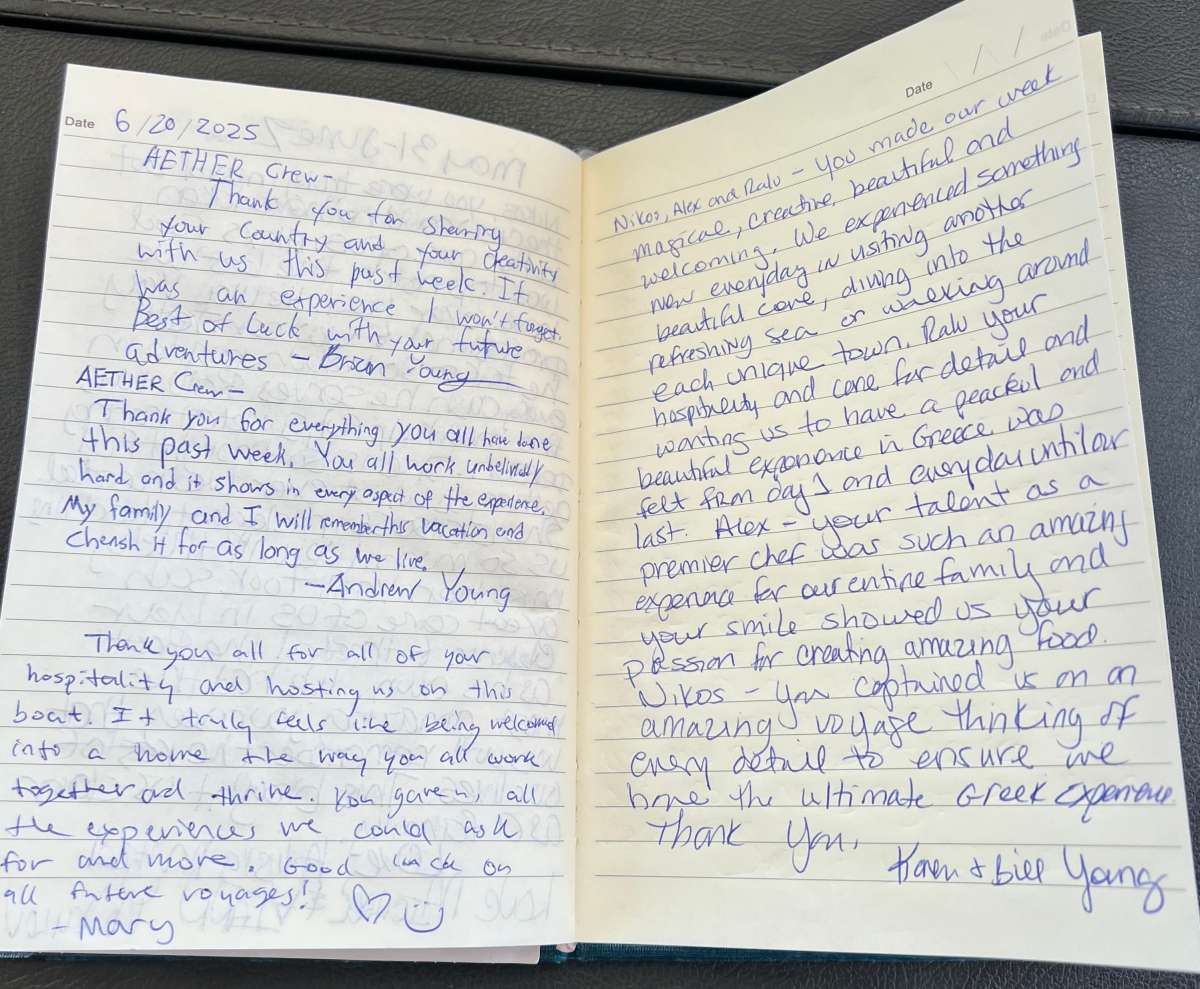 Date 6/20/2025
AETHER Crew-
Thank you for sharing
your country and your creativity
with us this past week. It
was an experience I won't forget.
Best of Luck with your future
adventures - Brian Young
AETHER Crew-
Thank you for everything you all have done
this past week. You all work unbelievably
hard and it shows in every aspect of the experience.
My family and I will remember this vacation and
cherish it for as long as we live.
-Andrew Young
Thank you all for all of your
hospitality and hosting us on this
boat. It truly feels like being welcomed
into a home the way you all work
together and thrive. You gave us all
the experiences we could ask
for and more. Good luck on
all future voyages! ♡ :)
- Mary
Date
Nikos, Alex and Ralu - you made our week
magical, creative, beautiful and
welcoming. We experienced something
new everyday in visiting another
beautiful cove, diving into the
refreshing sea or walking around
each unique town. Ralu your
hospitality and care for detail and
wanting us to have a peaceful and
beautiful experience in Greece was
felt from day 1 and everyday until our
last. Alex - your talent as a
premier chef was such an amazing
experience for our entire family and
your smile showed us your
passion for creating amazing food.
Nikos - you captained us on an
amazing voyage thinking of
every detail to ensure we
have the ultimate Greek experience
Thank you,
Karen + Bill Young